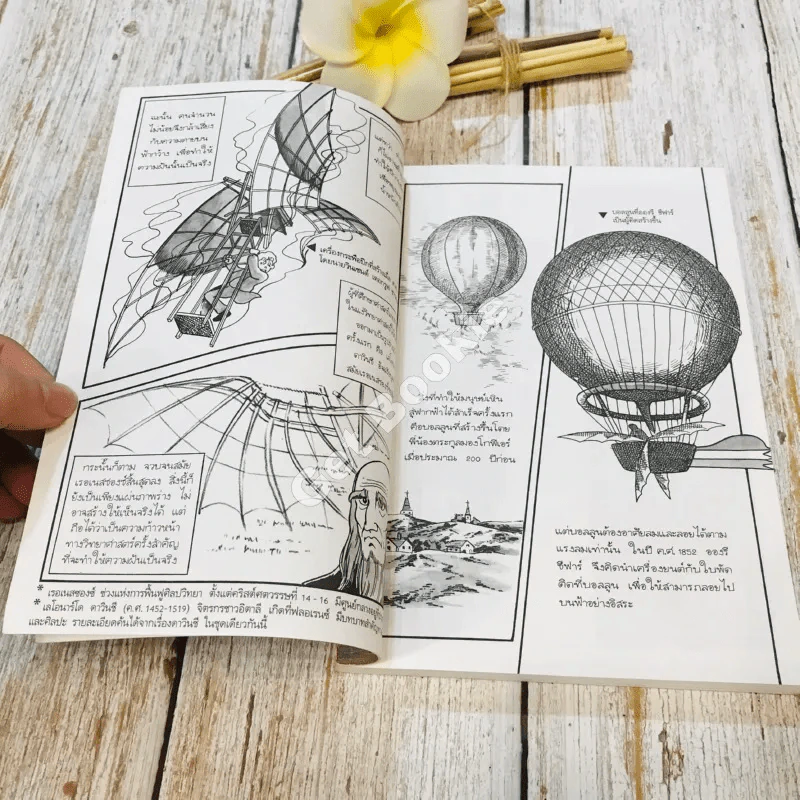 ฉะนั้น คนจำนวน
ไม่น้อยจึงกล้าเสี่ยง
กับความตายบน
ฟ้ากว้าง เพื่อทำให้
ความฝันนั้นเป็นจริง
เครื่องกระพือปีกที่สร้างขึ้น
กระนั้นก็ตาม จวบจนสมัย
เรอเนสซองซ์สิ้นสุดลง สิ่งนี้ก็
ยังเป็นเพียงแผ่นภาพร่าง ไม่
อาจสร้างให้เห็นจริงได้ แต่
ถือได้ว่าเป็นความก้าวหน้า
ทางวิทยาศาสตร์ครั้งสำคัญ
ที่จะทำให้ความฝันเป็นจริง
* เรอเนสซองซ์ ช่วงแห่งการฟื้นฟูศิลปวิทยา ตั้งแต่คริสต์ศตวรรษที่ 14 - 16 มีศูนย์กลาง
* เลโอนาร์โด ดาวินชี (ค.ศ. 1452-1519) จิตรกรชาวอิตาลี เกิดที่ฟลอเรนซ์ มีบทบาท
และศิลปะ รายละเอียดค้นได้จากเรื่องดาวินชี ในชุดเดียวกันนี้
ที่ทำให้มนุษย์เหิน
สู่ฟากฟ้าได้สำเร็จครั้งแรก
คือบอลลูนที่สร้างขึ้นโดย
พี่น้องตระกูลมองโกฟิเอร์
เมื่อประมาณ 200 ปีก่อน
บอลลูนที่อองรี ชีฟาร์
เป็นผู้คิดสร้างขึ้น
แต่บอลลูนต้องอาศัยลมและลอยได้ตาม
แรงลมเท่านั้น ในปี ค.ศ. 1852 อองรี
ชีฟาร์ จึงคิดนำเครื่องยนต์กับใบพัด
ติดที่บอลลูน เพื่อให้สามารถลอยไป
บนฟ้าอย่างอิสระ
Get Bookie